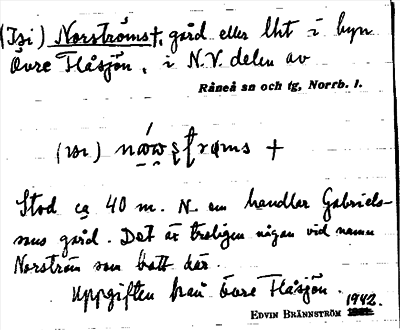 (Isi) Norströms †, gård eller lht i byn
Övre Flåsjön, i N.V. delen av
Råneå sn och tg, Norrb. l.
(ısı) †
Stod ca 40 m. N om handlar Gabriels-
sons gård. Det är troligen någon vid namn
Norström som bott där.
Uppgiften från Övre Flåsjön.
1942.
EDVIN BRÄNNSTRÖM